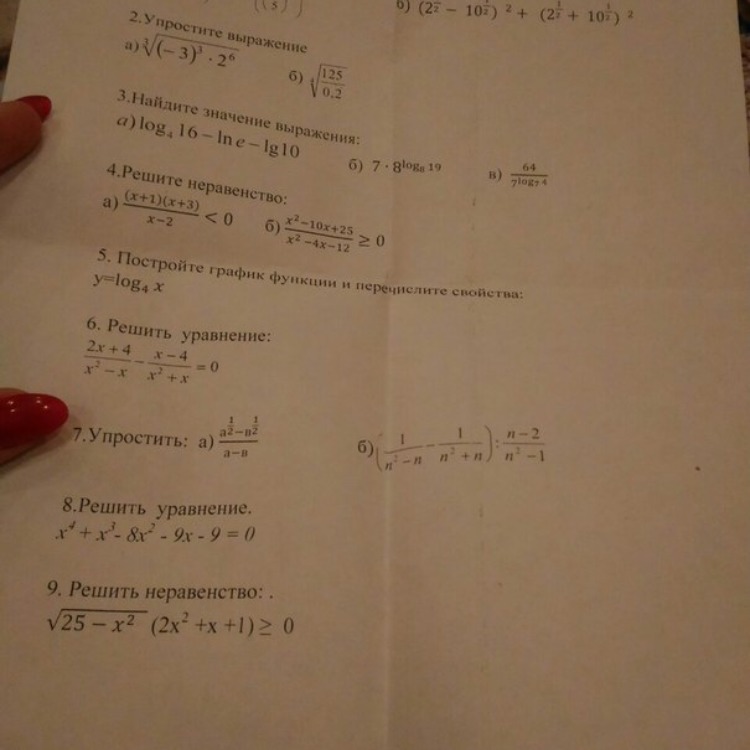 б) (2^{1/2} − 10^{1/2})² + (2^{1/2} + 10^{1/2})²
2.Упростите выражение
а) ∛((−3)³ · 2⁶) б) ∜(125/0,2)
3.Найдите значение выражения:
а) log₄ 16 − ln e − lg10 б) 7 · 8^{log₈ 19} в) 64/7^{log₇ 4}
4.Решите неравенство:
а) (x+1)(x+3)/(x−2) < 0 б) (x²−10x+25)/(x²−4x−12) ≥ 0
5. Постройте график функции и перечислите свойства:
y=log₄ x
6. Решить уравнение:
(2x + 4)/(x² − x) − (x − 4)/(x² + x) = 0
7.Упростить: а) (а^{1/2}−в^{1/2})/(а−в) б) (1/(n² − n) − 1/(n² + n)) : (n − 2)/(n² − 1)
8.Решить уравнение.
x⁴ + x³- 8x² - 9x - 9 = 0
9. Решить неравенство: .
√(25 − x²) (2x² +x +1) ≥ 0